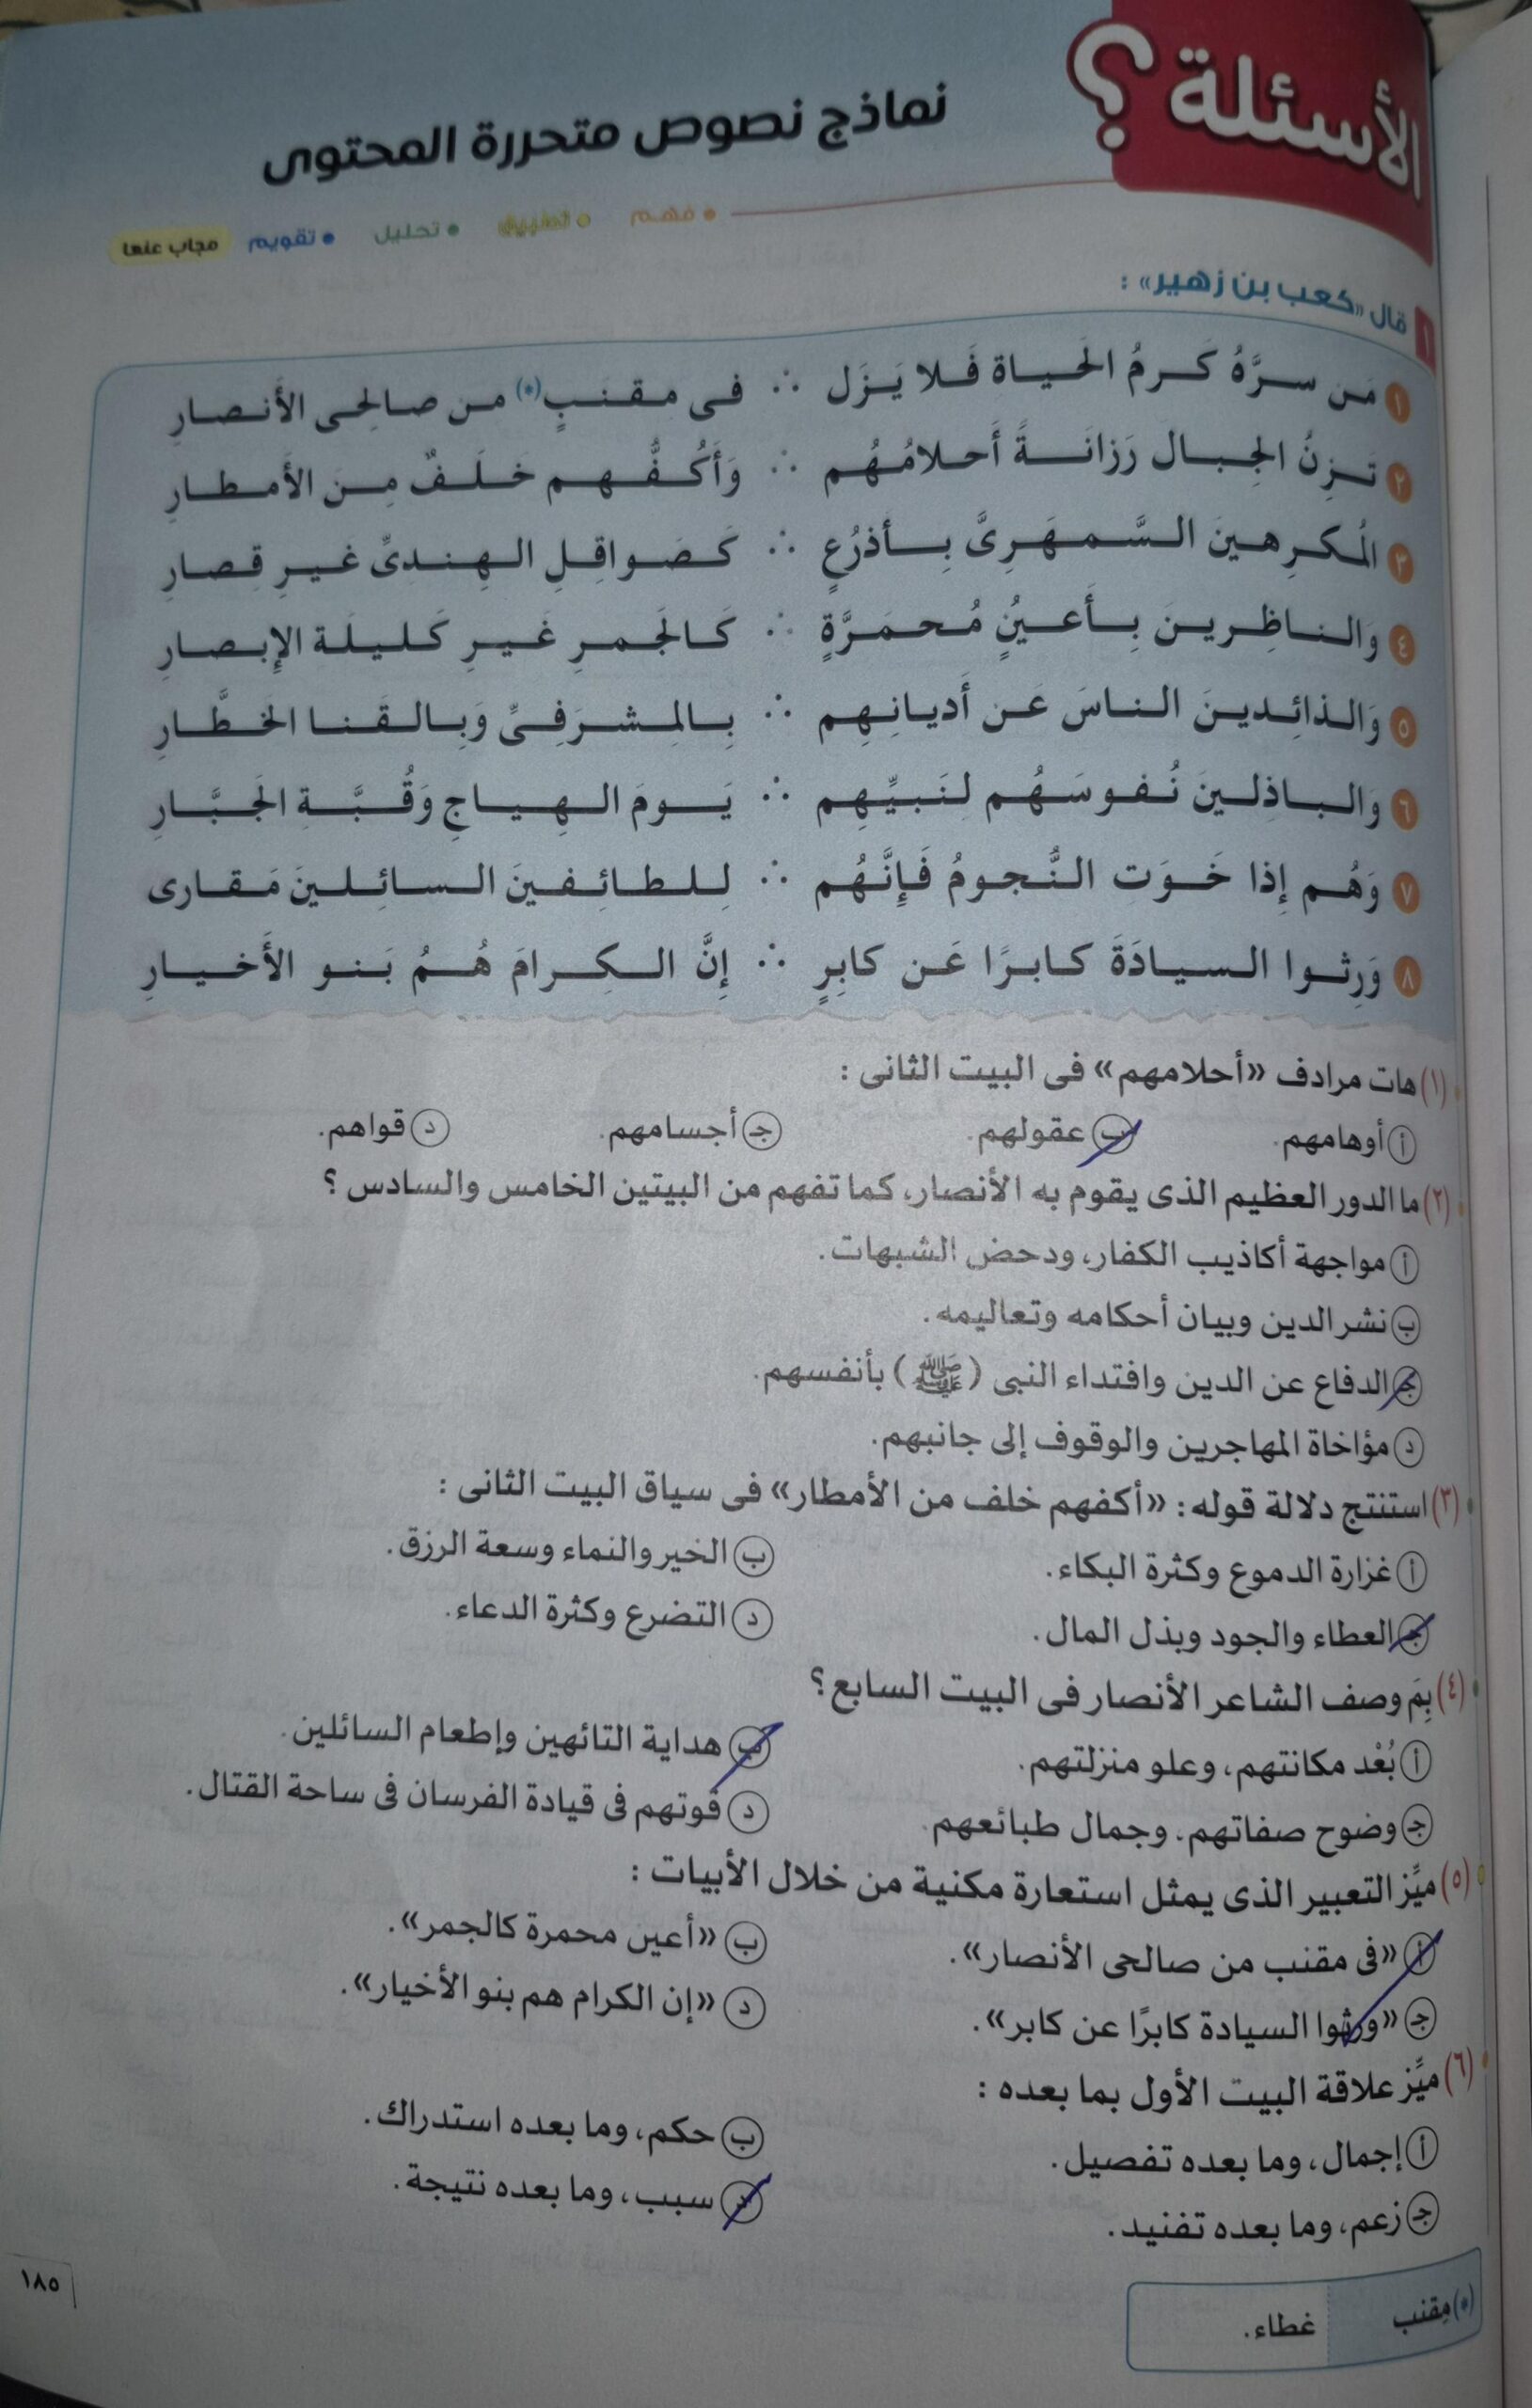 الأسئلة ؟
نماذج نصوص متحررة المحتوى
• فهم • تطبيق • تحليل • تقويم مجاب عنها
١ قال «كعب بن زهير» :
١ مَن سرَّهُ كَرمُ الحَياة فَلا يَزَل ∴ فى مقنَبٍ(*) من صالِحى الأَنصارِ
٢ تَزِنُ الجِبالَ رَزانَةً أَحلامُهُم ∴ وَأَكُفُّهم خَلَفٌ مِنَ الأَمطارِ
٣ المُكرِهينَ السَّمهَرِىَّ بِأَذرُعٍ ∴ كَصَواقِلِ الهِندىِّ غيرِ قِصارِ
٤ وَالناظِرينَ بِأَعيُنٍ مُحمَرَّةٍ ∴ كَالجَمرِ غَيرِ كَليلَة الإِبصارِ
٥ وَالذائِدينَ الناسَ عَن أَديانِهِم ∴ بِالمِشرَفِىِّ وَبِالقَنا الخَطَّارِ
٦ وَالباذِلينَ نُفوسَهُم لِنَبيِّهِم ∴ يَومَ الهِياجِ وَقُبَّةِ الجَبَّارِ
٧ وَهُم إِذا خَوَت النُّجومُ فَإِنَّهُم ∴ لِلطائِفينَ السائِلينَ مَقارى
٨ وَرِثوا السيادَةَ كابرًا عَن كابِرٍ ∴ إِنَّ الكِرامَ هُمُ بَنو الأَخيارِ
(١) هات مرادف «أحلامهم» فى البيت الثانى :
أ أوهامهم. ب عقولهم. ج أجسامهم. د قواهم.
(٢) ما الدور العظيم الذى يقوم به الأنصار، كما تفهم من البيتين الخامس والسادس ؟
أ مواجهة أكاذيب الكفار، ودحض الشبهات.
ب نشر الدين وبيان أحكامه وتعاليمه.
ج الدفاع عن الدين وافتداء النبى (ﷺ) بأنفسهم.
د مؤاخاة المهاجرين والوقوف إلى جانبهم.
(٣) استنتج دلالة قوله : «أكفهم خلف من الأمطار» فى سياق البيت الثانى :
أ غزارة الدموع وكثرة البكاء. ب الخير والنماء وسعة الرزق.
ج العطاء والجود وبذل المال. د التضرع وكثرة الدعاء.
(٤) بِمَ وصف الشاعر الأنصار فى البيت السابع ؟
أ بُعْد مكانتهم، وعلو منزلتهم. ب هداية التائهين وإطعام السائلين.
ج وضوح صفاتهم، وجمال طبائعهم. د قوتهم فى قيادة الفرسان فى ساحة القتال.
(٥) ميِّز التعبير الذى يمثل استعارة مكنية من خلال الأبيات :
أ «فى مقنب من صالحى الأنصار». ب «أعين محمرة كالجمر».
ج «ورثوا السيادة كابرًا عن كابر». د «إن الكرام هم بنو الأخيار».
(٦) ميِّز علاقة البيت الأول بما بعده :
أ إجمال، وما بعده تفصيل. ب حكم، وما بعده استدراك.
ج زعم، وما بعده تفنيد. د سبب، وما بعده نتيجة.
(*) مِقنب غطاء.
١٨٥